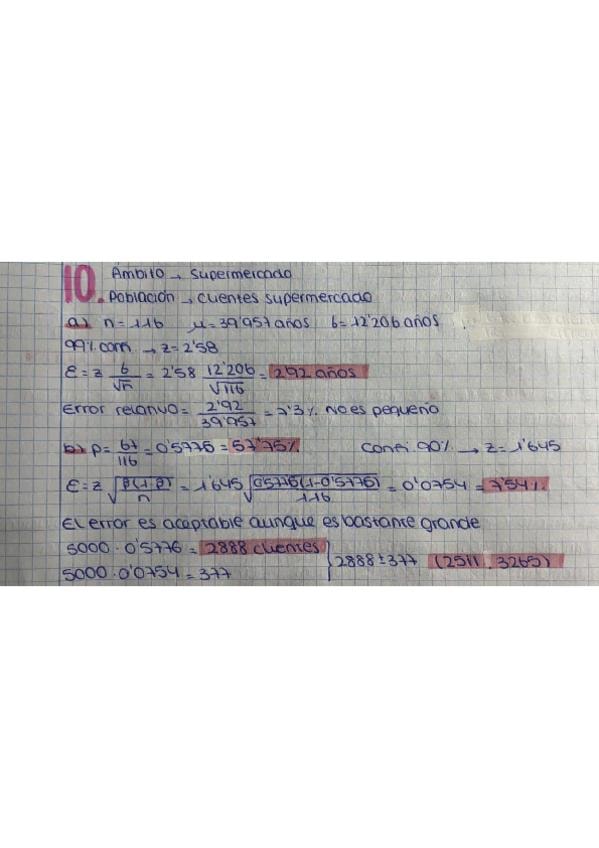 10. Ámbito → Supermercado
Población → clientes supermercado
a) n = 116 μ = 39'957 años σ = 12'206 años
99% conf. → z = 2'58
ε = z σ/√n = 2'58 12'206/√116 = 2'92 años
Error relativo = 2'92/39'957 = 7'3% no es pequeño
b) p = 67/116 = 0'5776 = 57'75% Confi. 90% → z = 1'645
ε = z √(p(1-p)/n) = 1'645 √(0'5776(1-0'5776)/116) = 0'0754 = 7'54%
El error es aceptable aunque es bastante grande
5000 · 0'5776 = 2888 clientes
5000 · 0'0754 = 377 } 2888 ± 377 (2511, 3265)